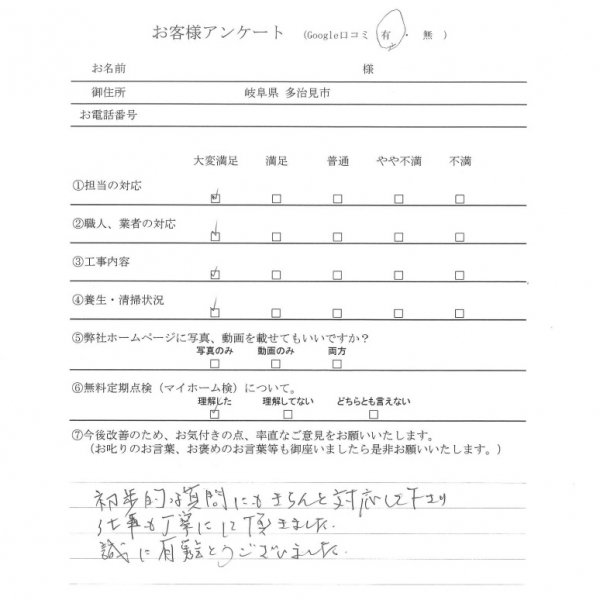 お客様アンケート (Google口コミ 有 ・ 無 )
お名前 様
御住所 岐阜県 多治見市
お電話番号
大変満足 満足 普通 やや不満 不満
①担当の対応
②職人、業者の対応
③工事内容
④養生・清掃状況
⑤弊社ホームページに写真、動画を載せてもいいですか？
写真のみ 動画のみ 両方
⑥無料定期点検（マイホーム検）について。
理解した 理解してない どちらとも言えない
⑦今後改善のため、お気付きの点、率直なご意見をお願いいたします。
（お叱りのお言葉、お褒めのお言葉等も御座いましたら是非お願いいたします。）
初歩的な質問にもきちんと対応して下さり
仕事も丁寧にして頂きました。
誠に有難とうございました。